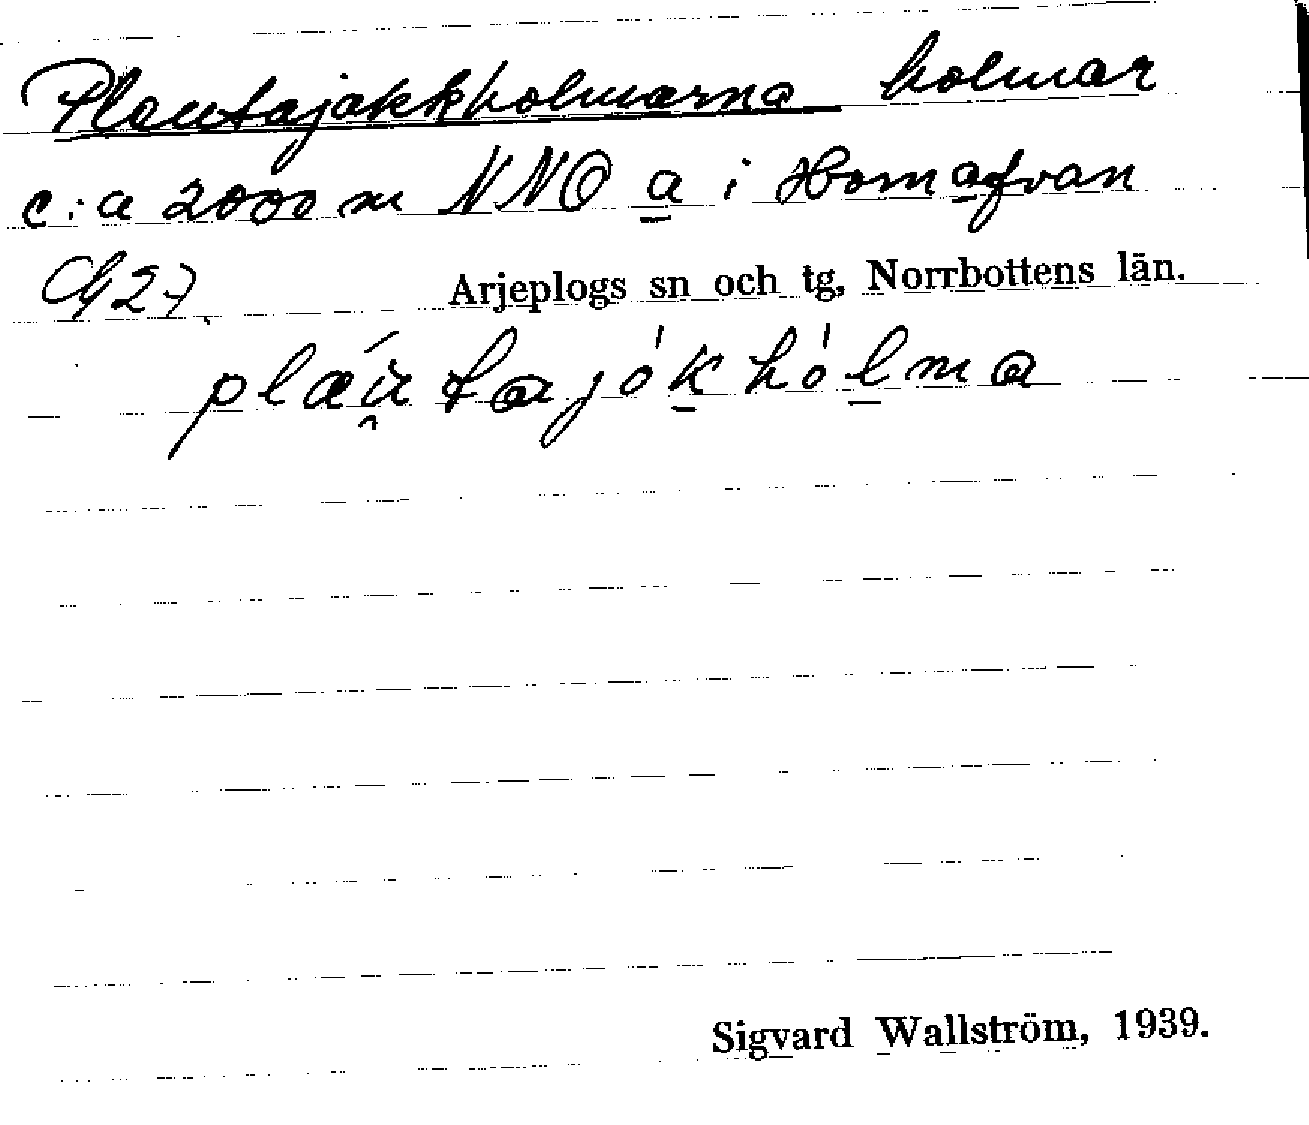 Plautajakkholmarna holmar
c:a 2000 m NNO a i Hornafvan
27 Arjeplogs sn och tg, Norrbottens län.
Sigvard Wallström, 1939.